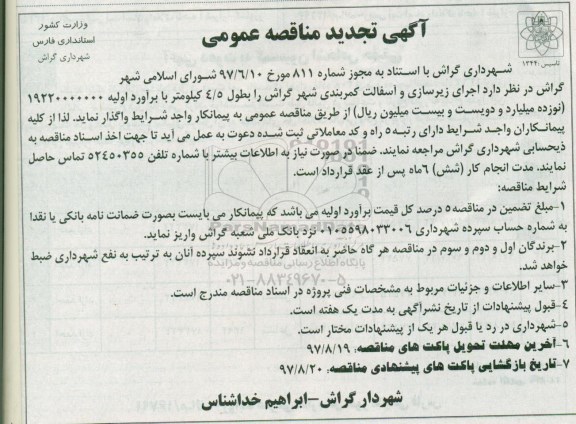 وزارت کشور
استانداری فارس
شهرداری گراش
آگهی تجدید مناقصه عمومی
تاسیس: ۱۳۴۴
شهرداری گراش با استناد به مجوز شماره ۸۱۱ مورخ ۹۷/۶/۱۰ شورای اسلامی شهر
گراش در نظر دارد اجرای زیرسازی و آسفالت کمربندی شهر گراش را بطول ۴/۵ کیلومتر با برآورد اولیه ۱۹۲۲۰۰۰۰۰۰۰
(نوزده میلیارد و دویست و بیست میلیون ریال) از طریق مناقصه عمومی به پیمانکار واجد شرایط واگذار نماید. لذا از کلیه
پیمانکاران واجد شرایط دارای رتبه ۵ راه و کد معاملاتی ثبت شده دعوت به عمل می آید تا جهت اخذ اسناد مناقصه به
ذیحسابی شهرداری گراش مراجعه نمایند. ضمنا در صورت نیاز به اطلاعات بیشتر با شماره تلفن ۵۲۴۵۰۳۵۵ تماس حاصل
نمایند. مدت انجام کار (شش) ۶ماه پس از عقد قرارداد است.
شرایط مناقصه:
۱-مبلغ تضمین در مناقصه ۵ درصد کل قیمت برآورد اولیه می باشد که پیمانکار می بایست بصورت ضمانت نامه بانکی یا نقدا
به شماره حساب سپرده شهرداری ۰۱۰۵۵۹۸۰۳۳۰۰۶ نزد بانک ملی شعبه گراش واریز نماید.
۲-برندگان اول و دوم و سوم در مناقصه هر گاه حاضر به انعقاد قرارداد نشوند سپرده آنان به ترتیب به نفع شهرداری ضبط
خواهد شد.
پایگاه اطلاع رسانی مناقصه و مزایده
۰۲۱-۸۸۳۴۹۶۷۰-۵
۳-سایر اطلاعات و جزئیات مربوط به مشخصات فنی پروژه در اسناد مناقصه مندرج است.
۴-قبول پیشنهادات از تاریخ نشرآگهی به مدت یک هفته است.
۵-شهرداری در رد یا قبول هر یک از پیشنهادات مختار است.
۶-آخرین مهلت تحویل پاکت های مناقصه: ۹۷/۸/۱۹
۷-تاریخ بازگشایی پاکت های پیشنهادی مناقصه: ۹۷/۸/۲۰
شهردار گراش-ابراهیم خداشناس